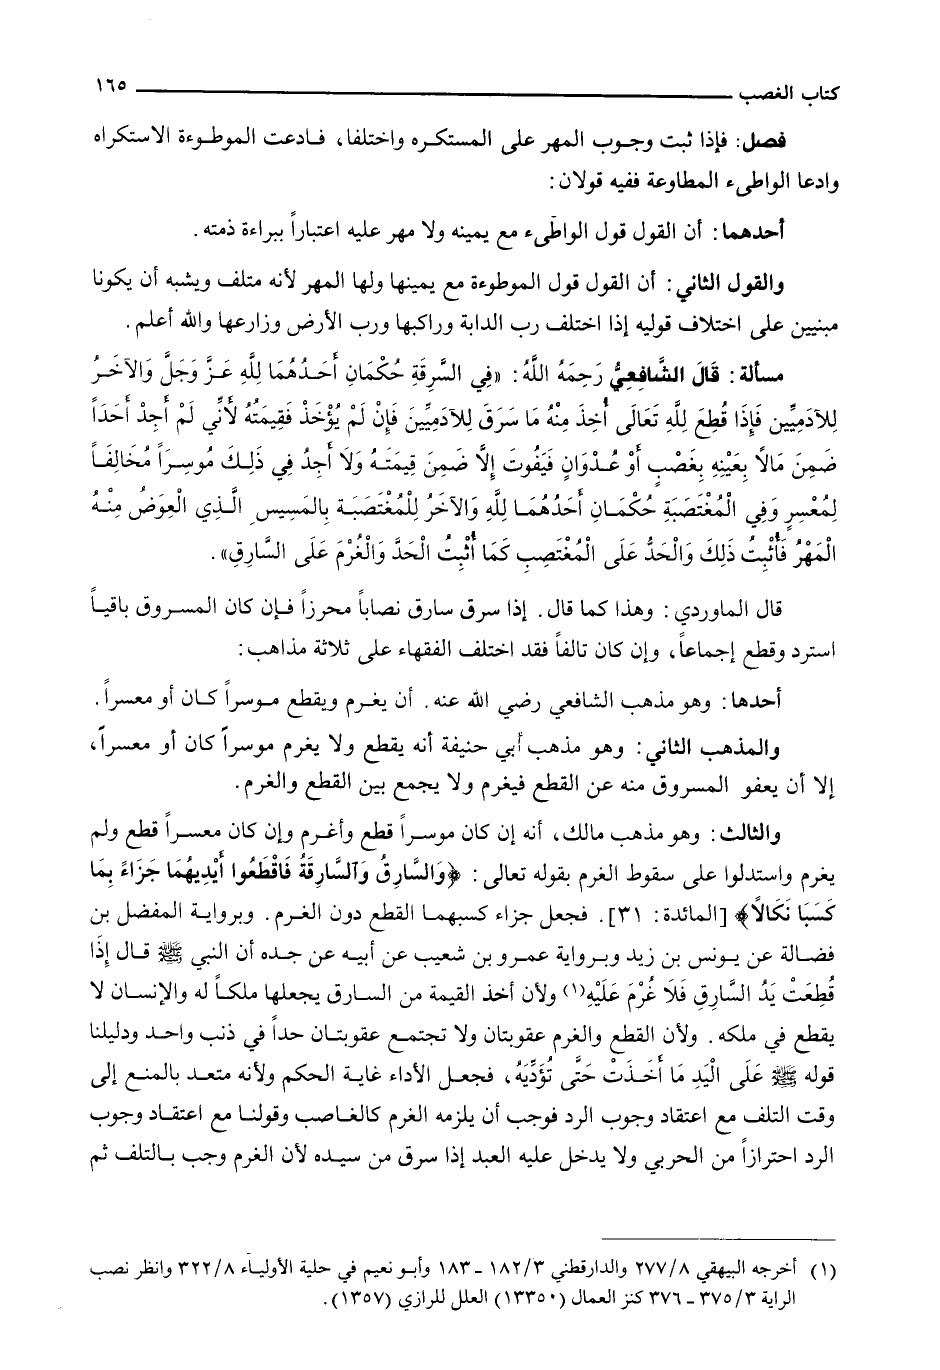 كتاب الغصب ١٦٥
فصل: فإذا ثبت وجوب المهر على المستكره واختلفا، فادعت الموطوءة الاستكراه
وادعا الواطىء المطاوعة ففيه قولان:
أحدهما: أن القول قول الواطىء مع يمينه ولا مهر عليه اعتباراً ببراءة ذمته.
والقول الثاني: أن القول قول الموطوءة مع يمينها ولها المهر لأنه متلف ويشبه أن يكونا
مبنيين على اختلاف قوليه إذا اختلف رب الدابة وراكبها ورب الأرض وزارعها والله أعلم.
مسألة: قَالَ الشَّافِعِيُّ رَحِمَهُ اللَّهُ: «فِي السَّرِقَةِ حُكْمَانِ أَحَدُهُمَا لِلَّهِ عَزَّ وَجَلَّ وَالآخَرُ
لِلآدَمِيِّين فَإِذَا قُطِعَ لِلَّهِ تَعَالَى أُخِذَ مِنْهُ مَا سَرَقَ لِلآدَمِيِّينَ فَإِنْ لَمْ يُؤْخَذْ فَقِيمَتُهُ لأَنِّي لَمْ أَجِدْ أَحَدَاً
ضَمِنَ مَالاً بِعَيْنِهِ بِغَصْبٍ أَوْ عُدْوَانٍ فَيَفُوتَ إِلَّا ضَمِنَ قِيمَتَهُ وَلاَ أَجِدُ فِي ذَلِكَ مُوسِرَاً مُخَالِفَاً
لِمُعْسِرٍ وَفِي الْمُغْتَصَبَةِ حُكْمَانِ أَحَدُهُمَا لِلَّهِ وَالآخَرُ لِلْمُغْتَصَبَةِ بِالمَسِيسِ الَّذِي الْعِوَضُ مِنْهُ
الْمَهْرُ فَأُثْبِتُ ذَلِكَ وَالْحَدُّ عَلَى الْمُغْتَصِبِ كَمَا أُثْبِتُ الْحَدَّ وَالْغُرْمَ عَلَى السَّارِقِ».
قال الماوردي: وهذا كما قال. إذا سرق سارق نصاباً محرزاً فإن كان المسروق باقياً
استرد وقطع إجماعاً، وإن كان تالفاً فقد اختلف الفقهاء على ثلاثة مذاهب:
أحدها: وهو مذهب الشافعي رضي الله عنه. أن يغرم ويقطع موسراً كان أو معسراً.
والمذهب الثاني: وهو مذهب أبي حنيفة أنه يقطع ولا يغرم موسراً كان أو معسراً،
إلا أن يعفو المسروق منه عن القطع فيغرم ولا يجمع بين القطع والغرم.
والثالث: وهو مذهب مالك، أنه إن كان موسراً قطع وأغرم وإن كان معسراً قطع ولم
يغرم واستدلوا على سقوط الغرم بقوله تعالى: ﴿وَالسَّارِقُ وَالسَّارِقَةُ فَاقْطَعُوا أَيْدِيهُمَا جَزَاءً بِمَا
كَسَبَا نَكَالاً﴾ [المائدة: ٣١]. فجعل جزاء كسبهما القطع دون الغرم. وبرواية المفضل بن
فضالة عن يونس بن زيد وبرواية عمرو بن شعيب عن أبيه عن جده أن النبي ﷺ قال إِذَا
قُطِعَتْ يَدُ السَّارِقِ فَلَا غُرْمَ عَلَيْهِ(١) ولأن أخذ القيمة من السارق يجعلها ملكاً له والإنسان لا
يقطع في ملكه. ولأن القطع والغرم عقوبتان ولا تجتمع عقوبتان حداً في ذنب واحد ودليلنا
قوله ﷺ عَلَى الْيَدِ مَا أَخَذَتْ حَتَّى تُؤَدِّيَهُ، فجعل الأداء غاية الحكم ولأنه متعد بالمنع إلى
وقت التلف مع اعتقاد وجوب الرد فوجب أن يلزمه الغرم كالغاصب وقولنا مع اعتقاد وجوب
الرد احترازاً من الحربي ولا يدخل عليه العبد إذا سرق من سيده لأن الغرم وجب بالتلف ثم
(١) أخرجه البيهقي ٢٧٧/٨ والدارقطني ١٨٢/٣ ـ ١٨٣ وأبو نعيم في حلية الأولياء ٣٢٢/٨ وانظر نصب
الراية ٣٧٥/٣ ـ ٣٧٦ كنز العمال (١٣٣٥٠) العلل للرازي (١٣٥٧).